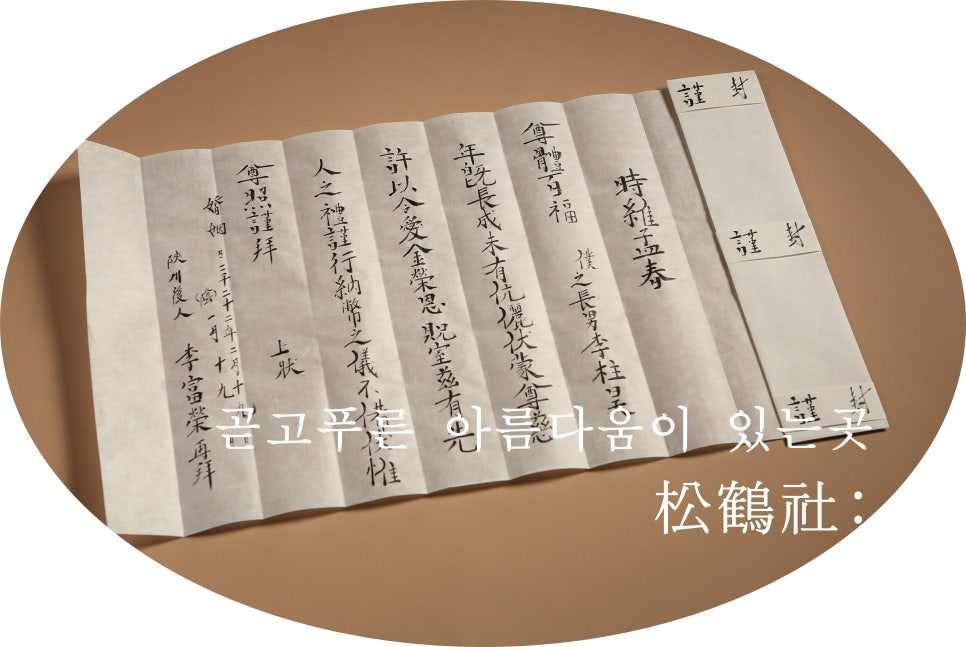 謹 封
謹 封
謹 封
時維孟春
尊體百福
僕之長男李柱昊
年旣長成未有伉儷伏蒙尊慈
許以令愛金榮恩貺室玆有先
人之禮謹行納幣之儀不備伏惟
尊照謹拜
上狀
婚姻日二千二十二年二月十九日
(陰)一月十九日
陜川後人 李富榮再拜
곧고푸른 아름다움이 있는곳
松鶴社: